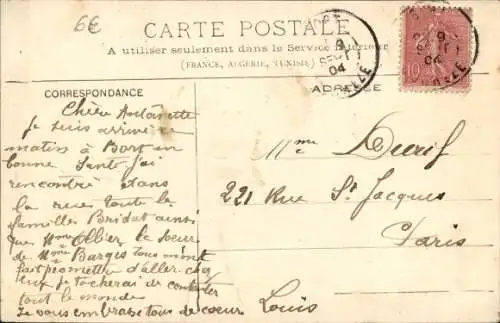 6€
CARTE POSTALE
A utiliser seulement dans le Service Intérieur
(FRANCE, ALGERIE, TUNISIE)
CORRESPONDANCE
ADRESSE
Chère Antoinette
Je suis arrivé ce
matin à Bort en
bonne Santé j'ai
rencontré dans
la rue toute la
familles Bridat ainsi
que Mme Ollier la soeur
de Mme Barges tous m'ont
fait promettre d'aller chez
eux je tacherai de contenter
tout le monde
Je vous embrasse tous de coeur
Louis
Mme Durif
221 Rue St Jacques
Paris
9
SEPT
04
CORREZE
10